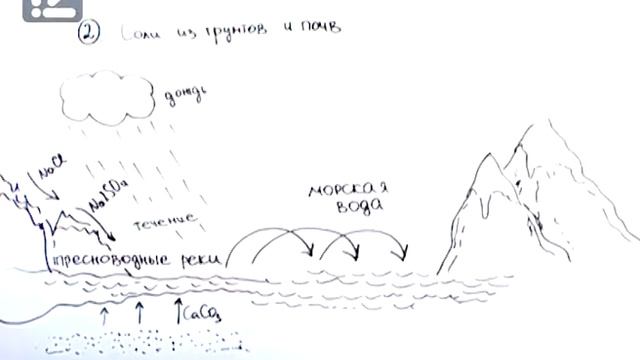 ② Соли из грунтов и почв
дождь
NaCl
Na2SO4
течение
морская
вода
пресноводные реки
CaCO3